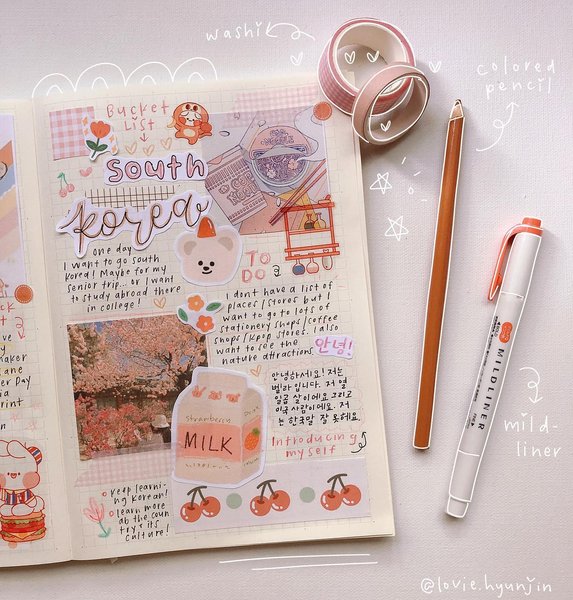 washi
colored
pencil
Bucket
List
south
korea
one day
I want to go south
korea! Maybe for my
senior trip... or I want
to study abroad there
in college!
TO
DO
I dont have a list of
places/stores but I
want to go to lots of
stationery shops/coffee
shops/kpop stores. I also
want to see the
nature attractions
안녕!
안녕하세요! 저는
입니다. 저 열
일곱 살이에요 그리고
미국 사람이에요. 저
는 한국말 잘 못해요.
Introducing
myself
strawberry
MILK
keep learni-
ng korean!
learn more
ab the coun
try + its
culture!
maker
ane
er Day
print
MILDLINER
mild-
liner
@lovie.hyunjin